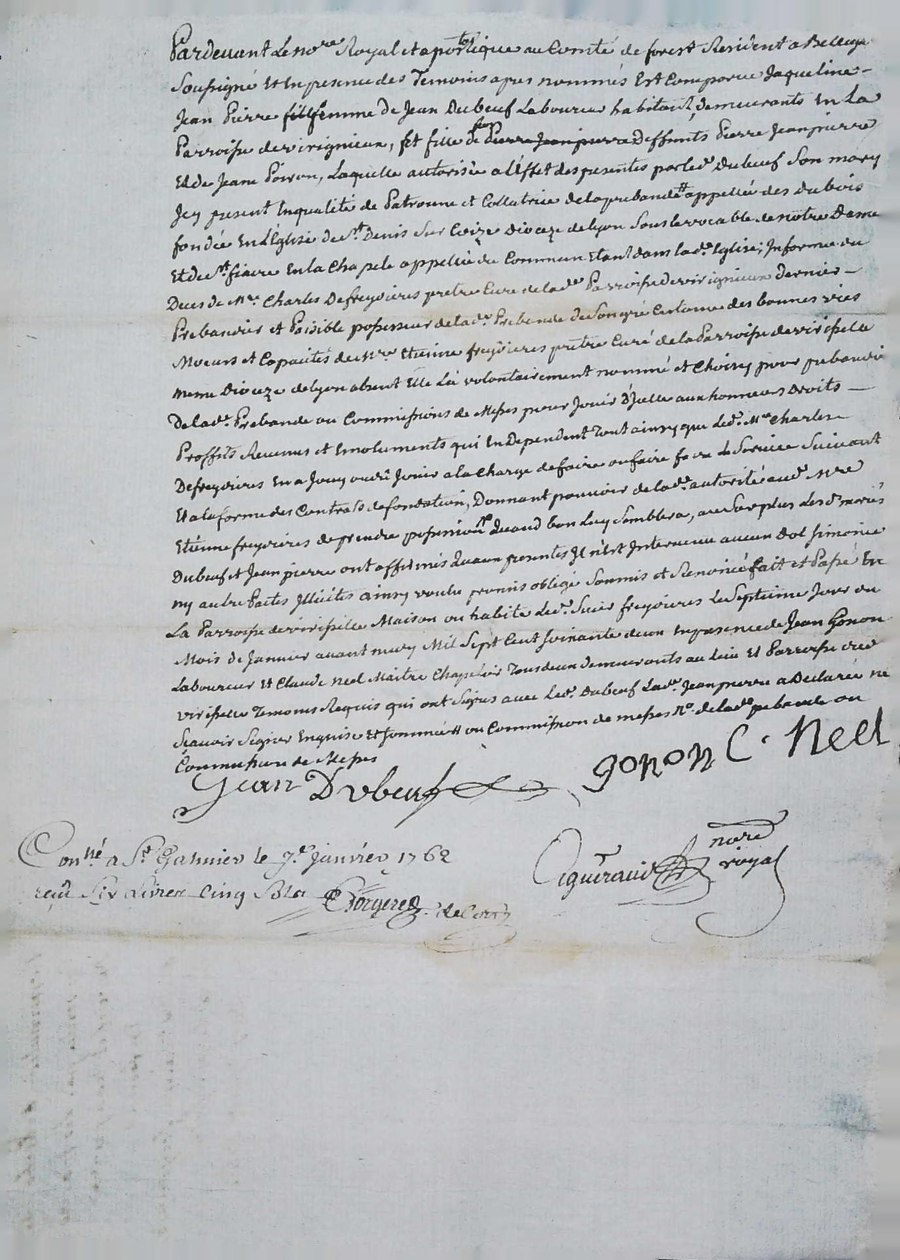 Pardevant Le no.re Royal et apostolique au Comté de forest Resident a Bellega
Soussigné Et En presence des Temoins apres nommés Est Comparue Jaqueline
Jean Pierre femme de Jean Dubeuf Laboureur habitant, demeurants En La
Parroisse de virignieux, Et fille de Deffunts Pierre Jeanpierre
Et de Jeane Poiron, Laquelle autorisée a l'Effet des presentes par led. Dubeuf Son mary
Icy present Enqualité de Patronne et Collatrice de la prebande appellée des dubois
fondée En L'Eglise de St. Denis Sur Coize Dioceze de lyon Sous le vocable de notre Dame
Et de St. fiacre En la Chapele appellée du Commun Etant dans lad.e Eglise, Informée du
Deces de Mre. Charles Defreydieres pretre Curé de lad.e Parroisse de virignieux dernier
Prebancier et Paisible possesseur de lad.e Prebande de Son gré Certaine des bonnes vies
Moeurs et Capacités de Mre Etienne freydieres pretre Curé de la Parroisse de viricelle
meme Dioceze de lyon absent Elle La volontairement nommé et Choisy pour prebancier
De lad.e Prebande ou Commissions de Messes pour Jouir d'Jcelle aux honneurs Droits
Proffits Revenus et Emoluments qui En Dependent Tout ainsy que led. Mre Charles
Defreydieres En a Jouy ou dû Jouir a la Charge de faire ou faire faire le Service Suivant
Et a la forme des Contrats de fondation, Donnant pouvoir de lad.e autorité aud. Mre
Etienne freydieres de prendre possession quand bon Luy Semblera, au Surplus Les d. mariés
Dubeuf et Jeanpierre ont affirmés qu'aux presentes Il n'est Intervenu aucun dol Simonie
ny autre Pactes Illicites ainsy voulu promis obligé Soumis et Renoncé fait et Passé En
La Parroisse de viricelle Maison ou habite led. Sieur freydieres Le Septieme Jour du
Mois de Janvier avant midy Mil Sept Cent Soixante deux En presence de Jean Gonon
Laboureur Et Claude Neel Maitre Chapelier Tous deux demeurants au Lieu Et Parroisse de
viricelle Temoins Requis qui ont Signés avec led. Dubeuf Lad.e Jeanpierre a Declarée ne
Sçavoir Signer Enquise et Sommée ou Commission de messes No. de lad.e prebande ou
Commission de Messes
Jean Dubeuf gonon C. Neel
Con.lé a St. Galmier le 7.e janvier 1762
reçu Six Livres Cinq Sols
no.re
royal